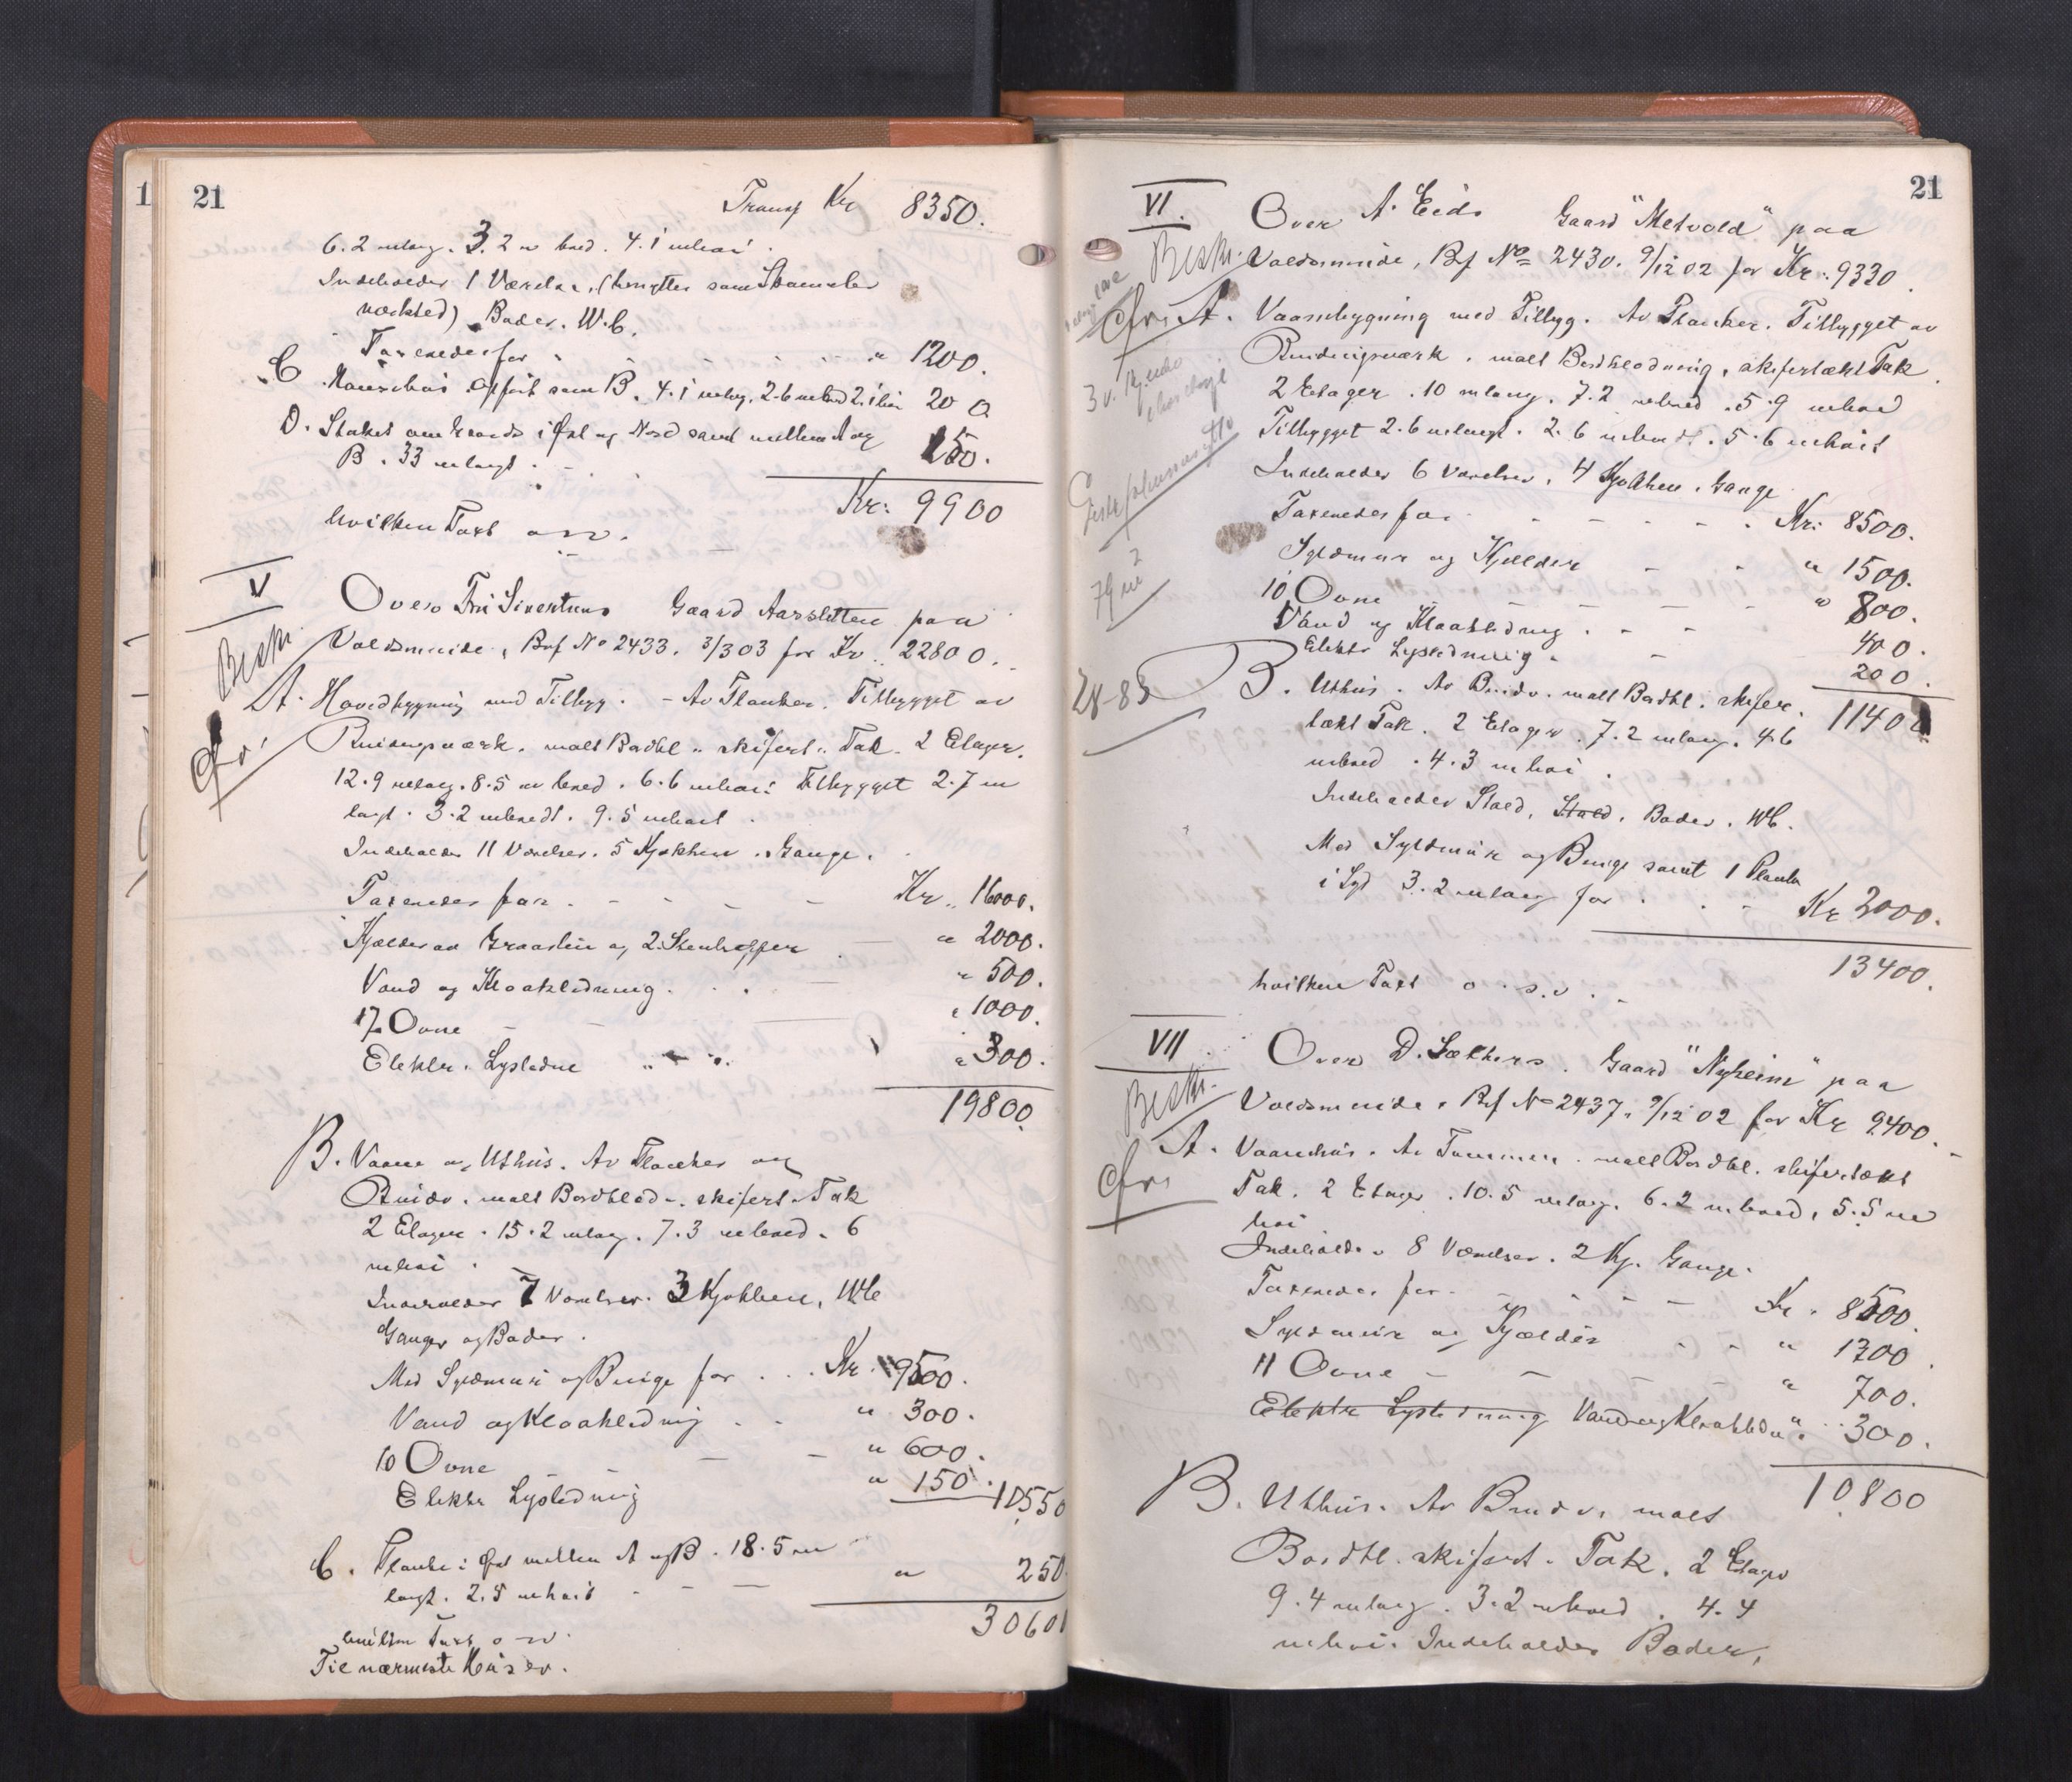 1
21
Transp Kr 8350.
6.2 m lang. 3.2 m bred. 4.1 m høi.
Indeholder 1 Værelse, (benyttes som
verksted) Boder. W.C.
Taxeredes for " 1200.
C. Hønsehus opført som B. 4.1 m lang, 2.6 m bred 2.1 høi 200
D. Stakit om Gaards i Øst og Nord samt mellem A og
B. 33 m langt. 150.
Kr: 9900
hvilken Taxt osv.
V
Over Fru Sivertsens Gaard Aarsletten paa
Beskr.
Voldsminde, Brf No 2433. 3/3 03 for Kr. 22800.
A. Hovedbygning med Tilbyg. - Av Planker. Tilbygget av
Cfr.
Bindingsværk. malt Bordkl. skifert. Tak. 2 Etager.
12.9 m lang. 8.5 m bred. 6.6 m høi. Tilbygget 2.7 m
langt. 3.2 m bredt. 9.5 m høit.
Indeholder 11 Værelser. 5 Kjøkken. Gange.
Taxeredes for Kr. 16000.
Kjælder av Graasten og 2 Stentrapper " 2000.
Vand og Kloakledning " 500.
17 Ovne " 1000.
Elektr. Lysledne " 300.
19800.
B. Vaane og Uthus. Av Planker og
Bindv. malt Bordklædn. skifert. Tak
2 Etager. 15.2 m lang. 7.3 m bred. 6
m høi.
Indeholder 7 Værelser. 3 Kjøkken, WC
Ganger og Boder.
Med Syldmur og Binge for Kr. 9500.
Vand og Kloakledning " 300.
10 Ovne " 600.
Elektr Lysledning " 150. 10550
C. Planke i Øst mellem A og B. 18.5 m
langt. 2.5 m høit " 250.
30600
hvilken Taxt osv.
Til nærmeste Hus ev.
21
VI.
Over A. Eids Gaard "Metvold" paa
Beskr.
Voldsminde, Brf No 2430. 9/12 02 for Kr. 9330.
Cfr. A. Vaanebygning med Tilbyg. Av Planker. Tilbygget av
Bindingsværk. malt Bordklædning, skifertækt Tak.
2 Etager. 10 m lang. 7.2 m bred. 5.9 m høi
Tilbygget 2.6 m langt. 2.6 m bredt. 5.6 m høit
Indeholder 6 Værelser, 4 Kjøkken. Gange
79 m2
Taxeredes for Kr. 8500.
Syldmur og Kjælder " 1500.
10 Ovne " 800.
Vand og Kloakledning 400.
Elektr Lysledning 200.
11400
28-85
B. Uthus. Av Bindv. malt Bordkl. skifer.
tækt Tak. 2 Etager. 7.2 m lang. 4.6
m bred. 4.3 m høi.
Indeholder Stald, Stald, Boder. WC.
Med Syldmur og Binge samt 1 Planke
i Syd 3.2 m lang for Kr 2000.
13400.
hvilken Taxt o.s.v.
VII
Over D. Sæthers. Gaard "Nyheim" paa
Beskr.
Voldsminde. Brf No 2437. 9/12 02 for Kr 9400.
A. Vaanehus. Av Tømmer. malt Bordkl. skifertækt
Cfr.
Tak. 2 Etager. 10.5 m lang. 6.2 m bred, 5.5 m
høi.
Indeholder 8 Værelser. 2 Kj. Gange.
Taxeredes for Kr. 8500.
Syldmur og Kjælder " 1300.
11 Ovne " 700.
Elektr Lysledning Vand og Kloakledn " 300.
10800
B. Uthus. Av Bindv. malt
Bordkl. skifert. Tak. 2 Etager
9.4 m lang. 3.2 m bred. 4.4
m høi. Indeholder Boder,